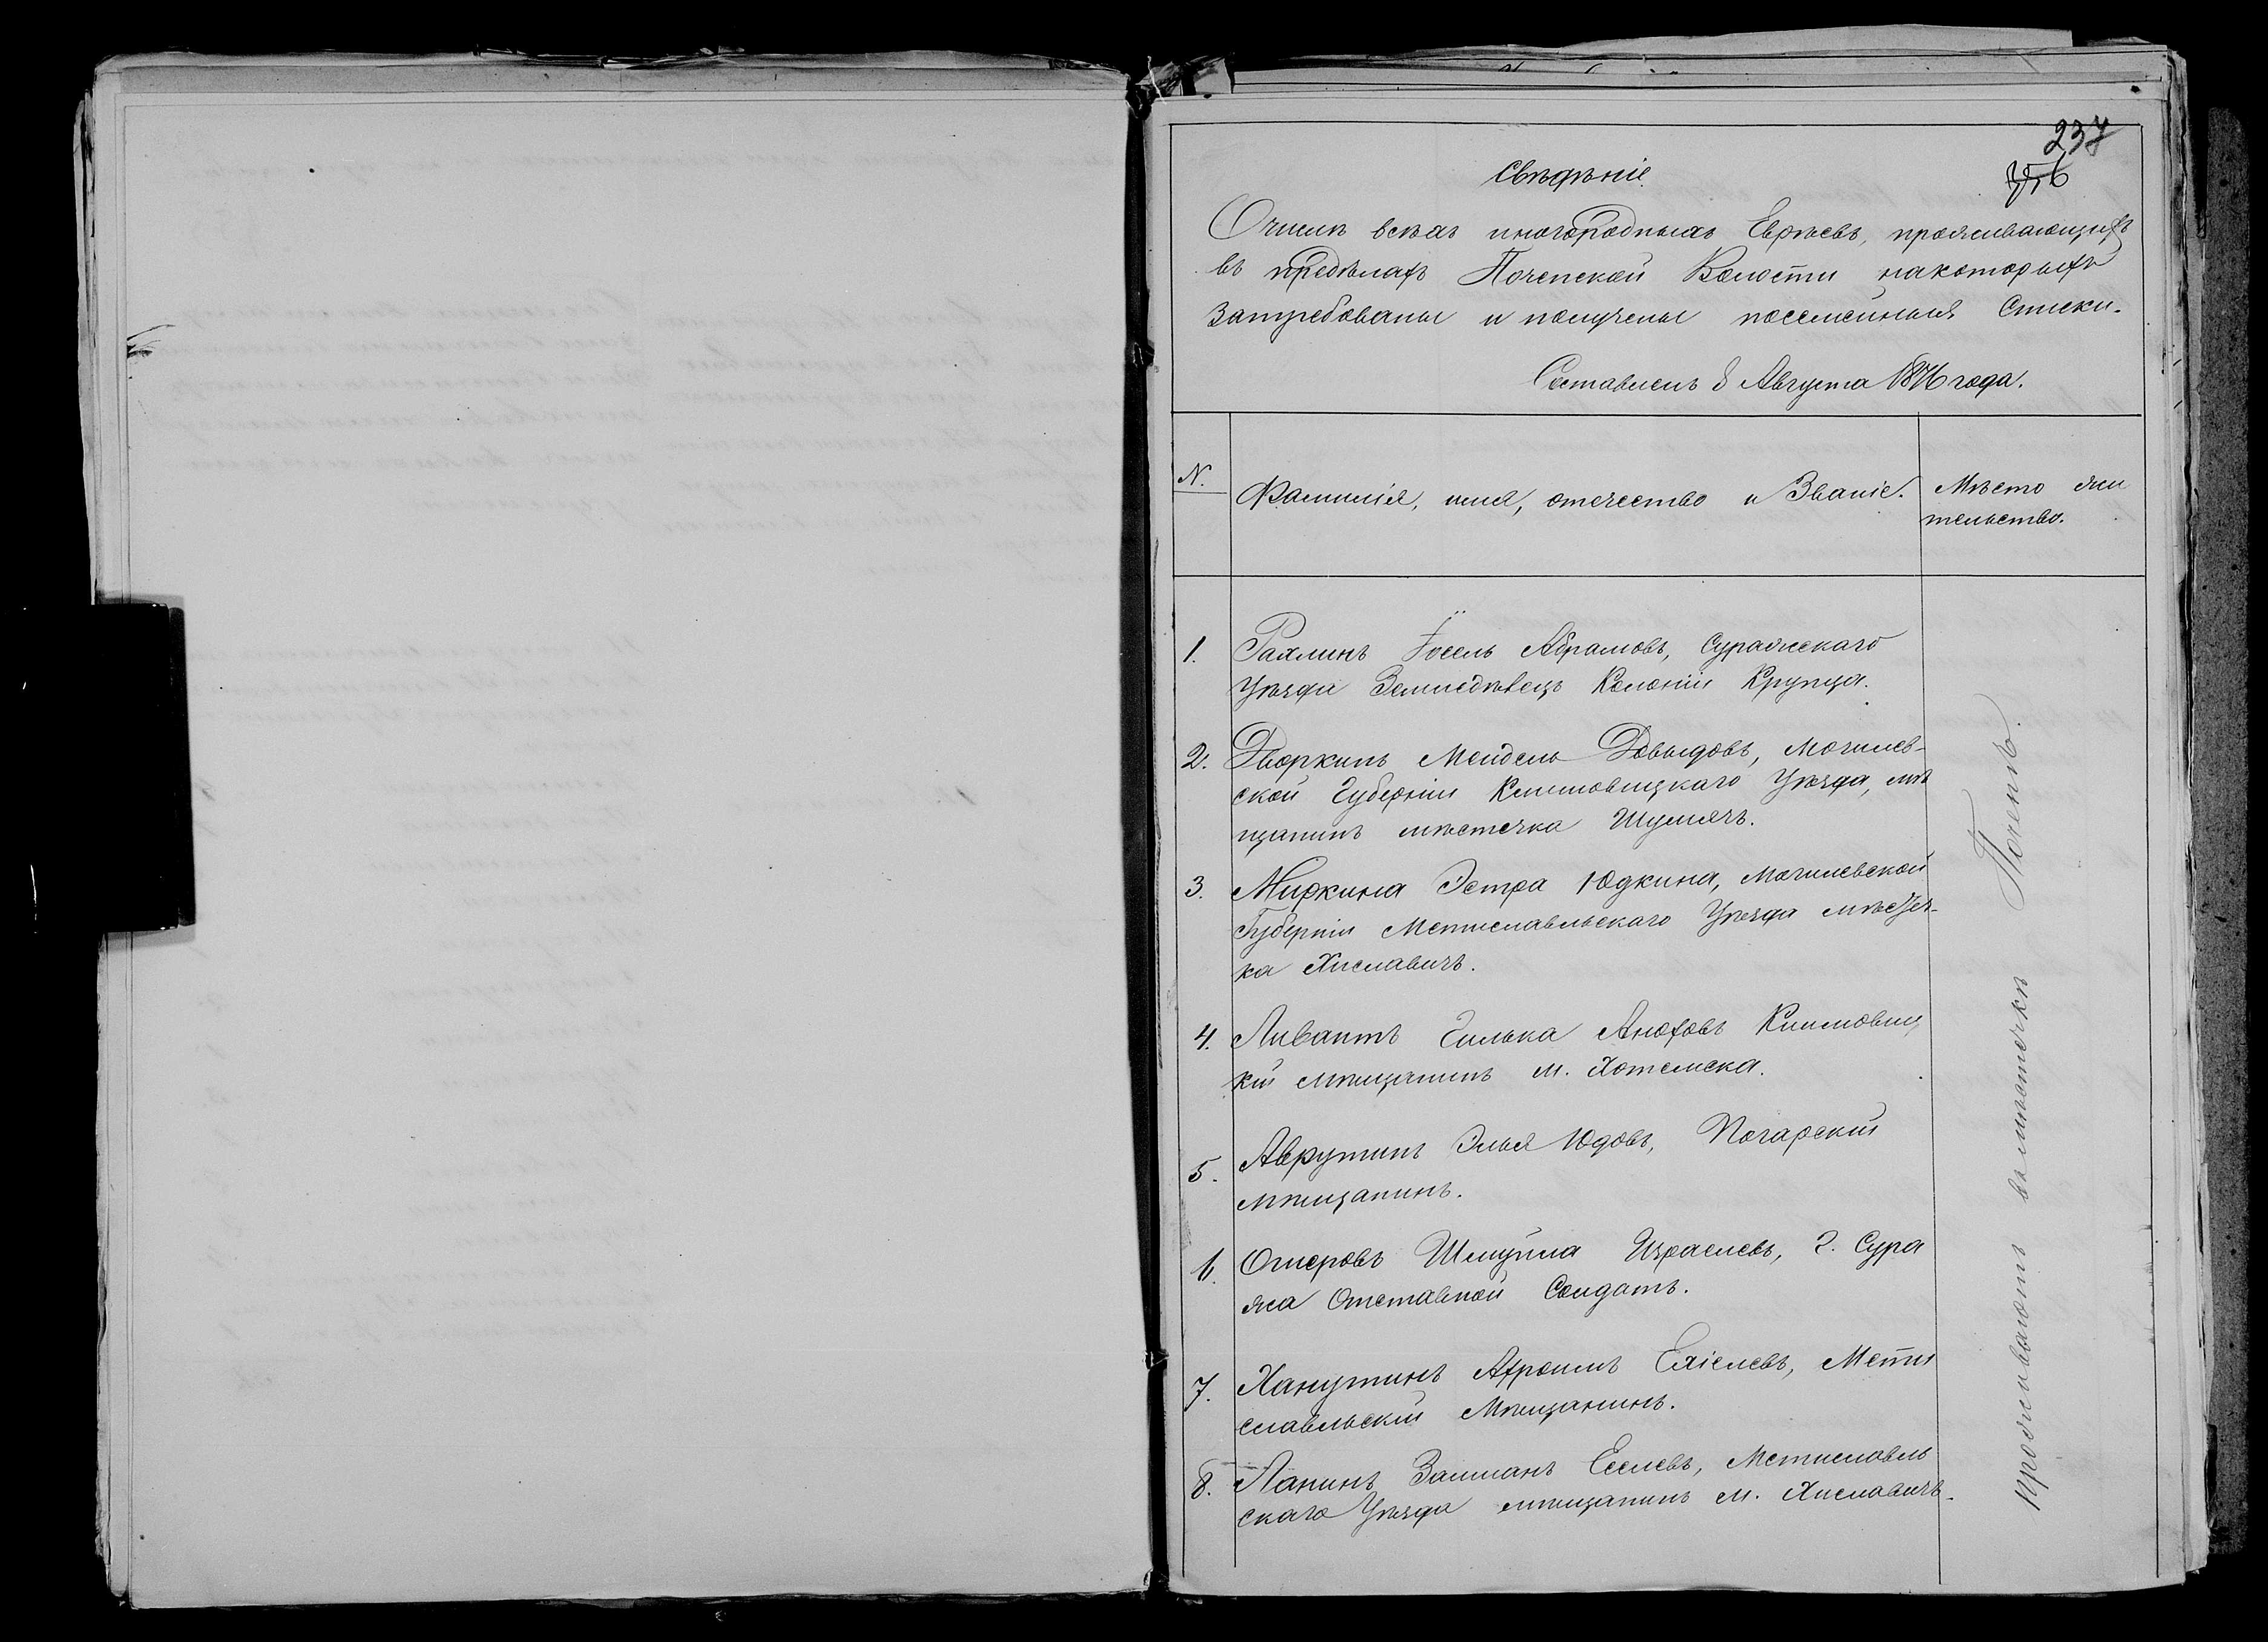 237
356
Свѣдѣніе.
О числѣ всѣхъ иногородныхъ Евреевъ, проживающихъ
въ предѣлахъ Почепской Волости на которыхъ
затребованы и получены посемейныя Списки.
Составленъ 8 Августа 1876 года.
N.
Фамилія, имя, отчество и Званіе.
Мѣсто жи
тельство.
1. Рахлинъ Іосель Абрамовъ, Суражскаго
Уѣзда Земледѣвецъ Колоніи Крупца.
2. Дворкинъ Мендель Довыдовъ, Могилев-
ской Губерніи Климовицкаго Уѣзда, мѣ
щанинъ мѣстечка Шумячъ.
3. Миркина Эстра Юдкина, Могилевской
Губерніи Мстиславльскаго Уѣзда мѣстеч-
ка Хиславичъ.
4. Ливантъ Гилька Аноховъ Климовиц
кій мѣщанинъ м. Хотемска.
5. Аврутинъ Элья Юдовъ, Погарскій
мѣщанинъ.
6. Омеровъ Шмуйла Израелевъ, г. Сура
жа Отставной Солдатъ.
7. Ханутинъ Афроимъ Ехіелевъ, Мсти
славльскій Мѣщанинъ.
8. Лапинъ Залманъ Еселевъ, Мстиславль
скаго Уѣзда мѣщанинъ м. Хиславичъ.
Проживаютъ въ мѣстечкѣ Почепѣ.